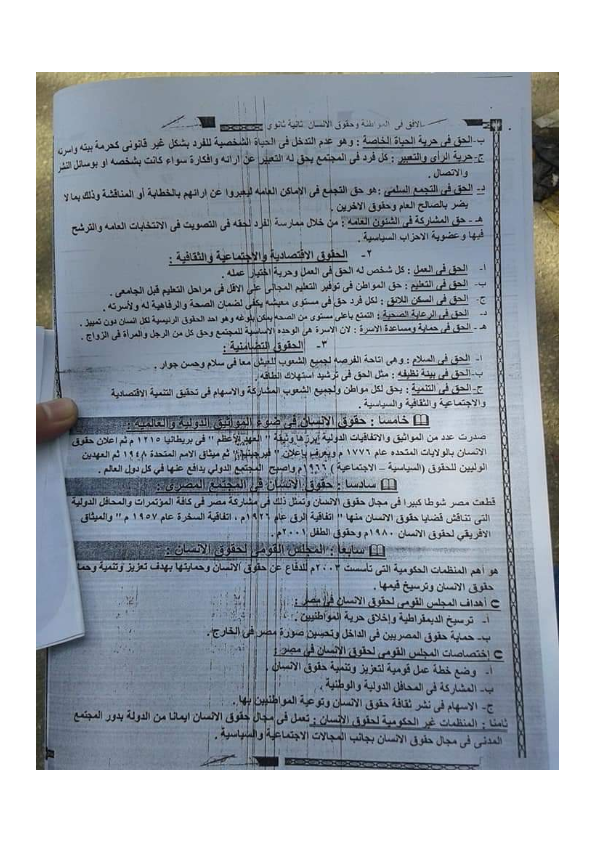 الافق فى المواطنة وحقوق الانسان ثانية ثانوي
ب- الحق فى حرية الحياة الخاصة : وهو عدم التدخل فى الحياة الشخصية للفرد بشكل غير قانونى كحرمة بيته واسرته
ج- حرية الرأى والتعبير : كل فرد فى المجتمع يحق له التعبير عن ارائه وافكارة سواء كانت بشخصه او بوسائل النشر
والاتصال .
د- الحق فى التجمع السلمى : هو حق التجمع فى الاماكن العامه ليعبروا عن ارائهم بالخطابة أو المناقشة وذلك بما لا
يضر بالصالح العام وحقوق الاخرين .
هـ - حق المشاركة فى الشئون العامه : من خلال ممارسة الفرد لحقه فى التصويت فى الانتخابات العامه والترشح
فيها وعضوية الاحزاب السياسية .
٢- الحقوق الاقتصادية والاجتماعية والثقافية :
أ- الحق فى العمل : كل شخص له الحق فى العمل وحرية اختيار عمله .
ب- الحق فى التعليم : حق المواطن فى توفير التعليم المجانى على الاقل فى مراحل التعليم قبل الجامعى .
ج- الحق فى السكن اللائق : لكل فرد حق فى مستوى معيشه يكفى لضمان الصحة والرفاهية له ولأسرته .
د- الحق فى الرعاية الصحية : التمتع بأعلى مستوى من الصحة يمكن بلوغه وهو احد الحقوق الرئيسية لكل انسان دون تمييز .
هـ - الحق فى حماية ومساعدة الاسرة : لان الاسرة هى الوحده الاساسية للمجتمع وحق كل من الرجل والمرأة فى الزواج .
٣- الحقوق التضامنية :
أ- الحق فى السلام : وهى اتاحة الفرصه لجميع الشعوب للعيش معا فى سلام وحسن جوار .
ب- الحق فى بيئة نظيفه : مثل الحق فى ترشيد استهلاك الطاقه .
ج- الحق فى التنمية : بحق لكل مواطن ولجميع الشعوب المشاركة والاسهام فى تحقيق التنمية الاقتصادية
والاجتماعية والثقافية والسياسية .
خامسا : حقوق الانسان فى ضوء المواثيق الدولية والعالمية :
صدرت عدد من المواثيق والاتفاقيات الدولية أبرزها وثيقة " العهد الأعظم " فى بريطانيا ١٢١٥ م ثم اعلان حقوق
الانسان بالولايات المتحده عام ١٧٧٦ م ويعرف بإعلان " فيرجينيا " ثم ميثاق الامم المتحدة ١٩٤٨م ثم العهدين
الوليين للحقوق (السياسية – الاجتماعية ) ١٩٦٦م واصبح المجتمع الدولي يدافع عنها في كل دول العالم .
سادسا : حقوق الانسان فى المجتمع المصرى :
قطعت مصر شوطا كبيرا فى مجال حقوق الانسان وتمثل ذلك فى مشاركة مصر فى كافة المؤتمرات والمحافل الدولية
التى تناقش قضايا حقوق الانسان منها " اتفاقية الرق عام ١٩٢٦م ، اتفاقية السخرة عام ١٩٥٧ م " والميثاق
الافريقي لحقوق الانسان ١٩٨٠م وحقوق الطفل ٢٠٠١م .
سابعا : المجلس القومى لحقوق الانسان :
هو أهم المنظمات الحكومية التى تأسست ٢٠٠٣م للدفاع عن حقوق الانسان وحمايتها بهدف تعزيز وتنمية وحما
حقوق الانسان وترسيخ قيمها .
أهداف المجلس القومى لحقوق الانسان فى مصر :
أ- ترسيخ الديمقراطية وإخلاق حرية المواطنيين .
ب- حماية حقوق المصريين فى الداخل وتحسين صورة مصر فى الخارج .
إختصاصات المجلس القومى لحقوق الانسان فى مصر :
أ- وضع خطة عمل قومية لتعزيز وتنمية حقوق الانسان .
ب- المشاركة فى المحافل الدولية والوطنية .
ج- الاسهام فى نشر ثقافة حقوق الانسان وتوعية المواطنيين بها .
ثامنا : المنظمات غير الحكومية لحقوق الانسان : تعمل فى مجال حقوق الانسان ايمانا من الدولة بدور المجتمع
المدنى فى مجال حقوق الانسان بجانب المجالات الاجتماعية والسياسية .